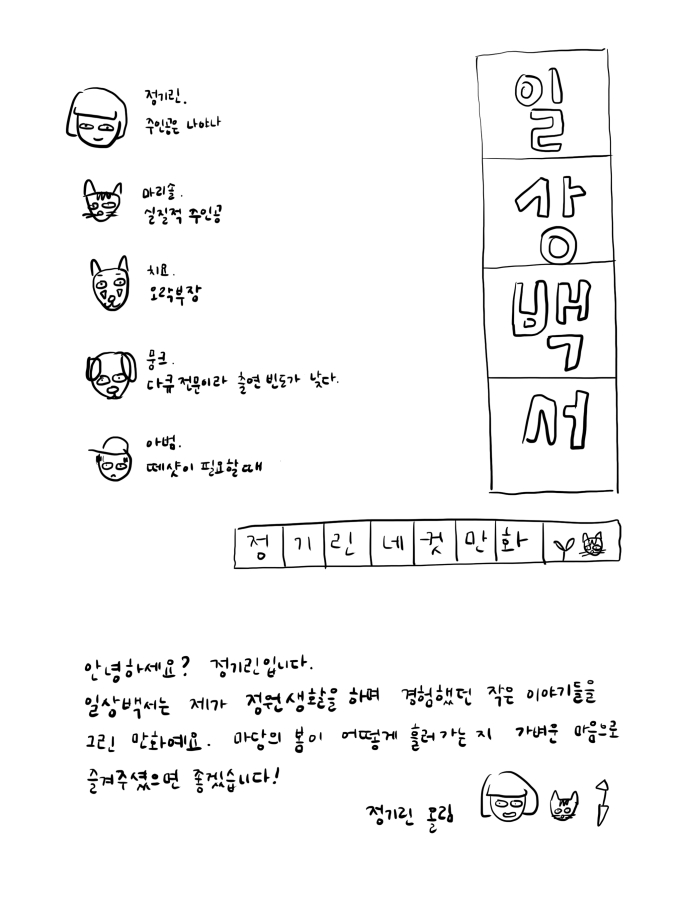 정기린.
주인공은 나야나
마리솔.
실질적 주인공
치요.
오락부장
뭉크.
다큐전문이라 출연 빈도가 낮다.
아범.
떼샷이 필요할때
일
상
백
서
정기린네컷만화
안녕하세요? 정기린입니다.
일상백서는 제가 정원생활을 하며 경험했던 작은 이야기들을
그린 만화예요. 마당의 봄이 어떻게 흘러가는지 가벼운 마음으로
즐겨주셨으면 좋겠습니다!
정기린 올림